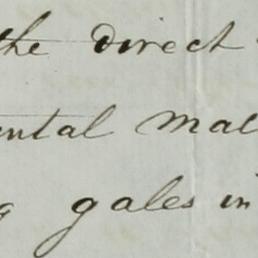 the direct
ental mal
g gales in